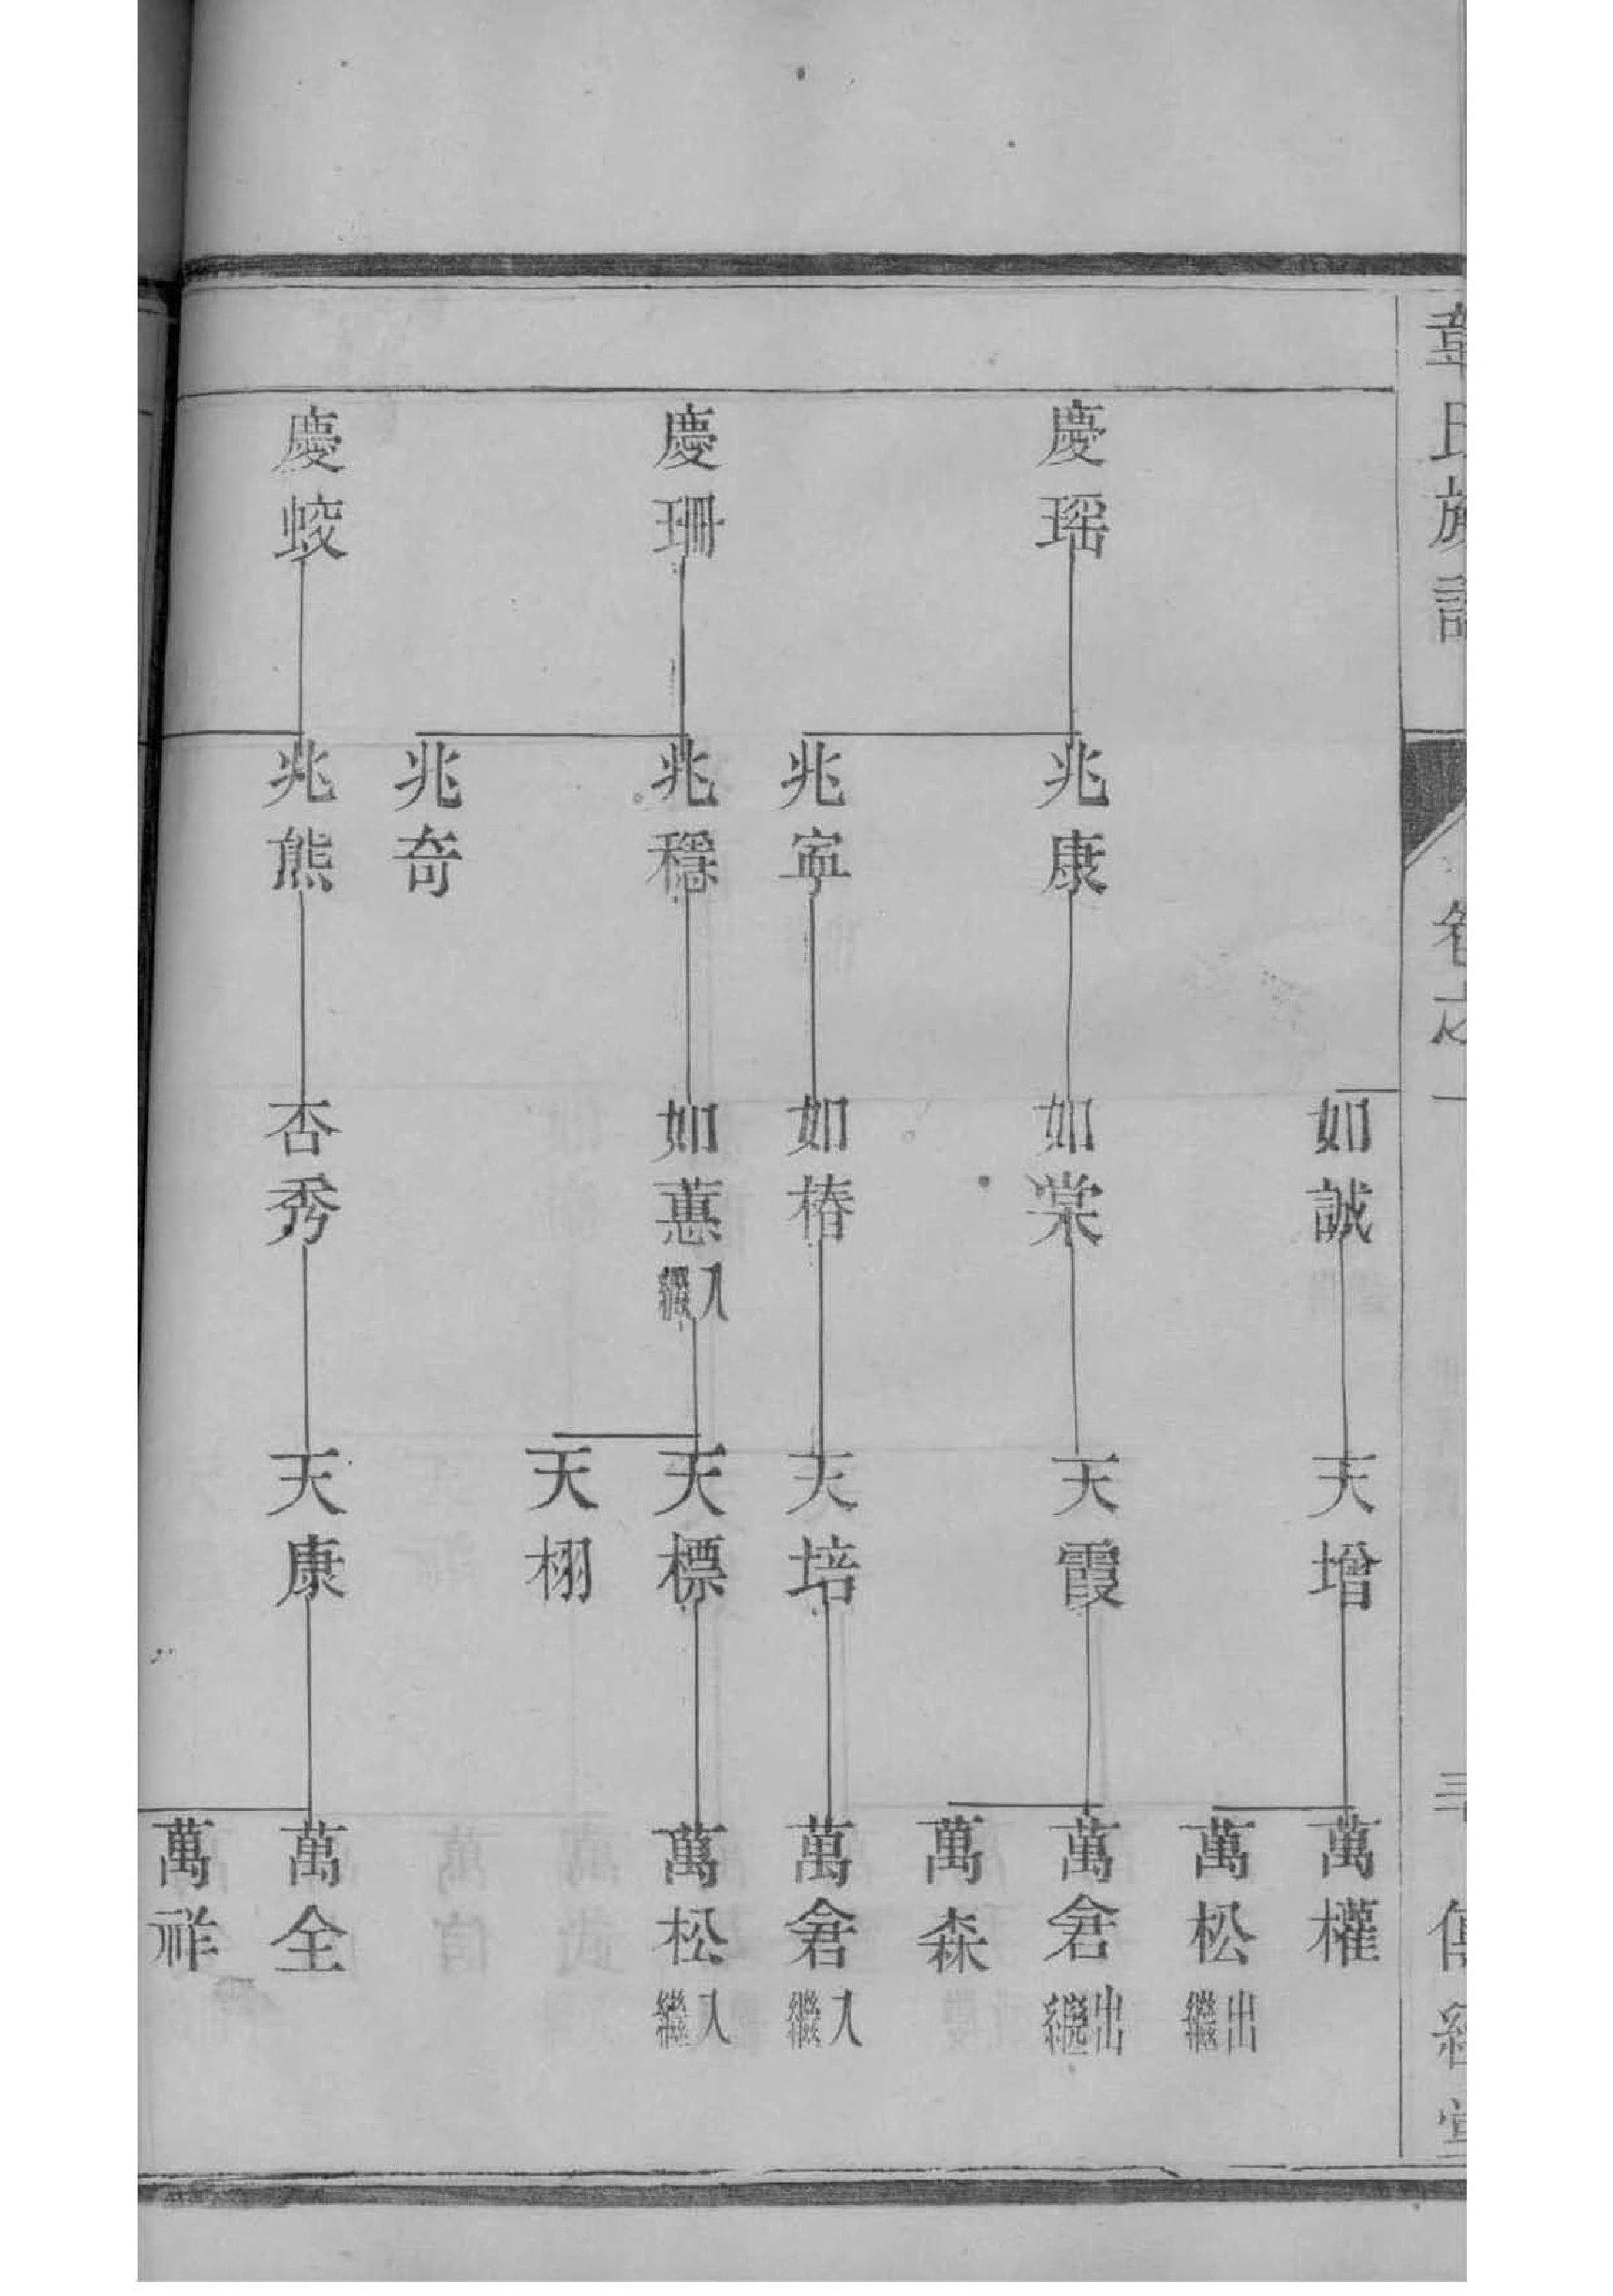 氏族譜
卷之一
傳經堂
慶瑶
慶珊
慶蛟
兆康
兆寧
兆穩
兆奇
兆熊
如誠
如棠
如椿
如蕙入繼
杏秀
天增
天霞
天培
天標
天栩
天康
萬權
萬松出繼
萬倉出繼
萬森
萬倉入繼
萬松入繼
萬全
萬祥